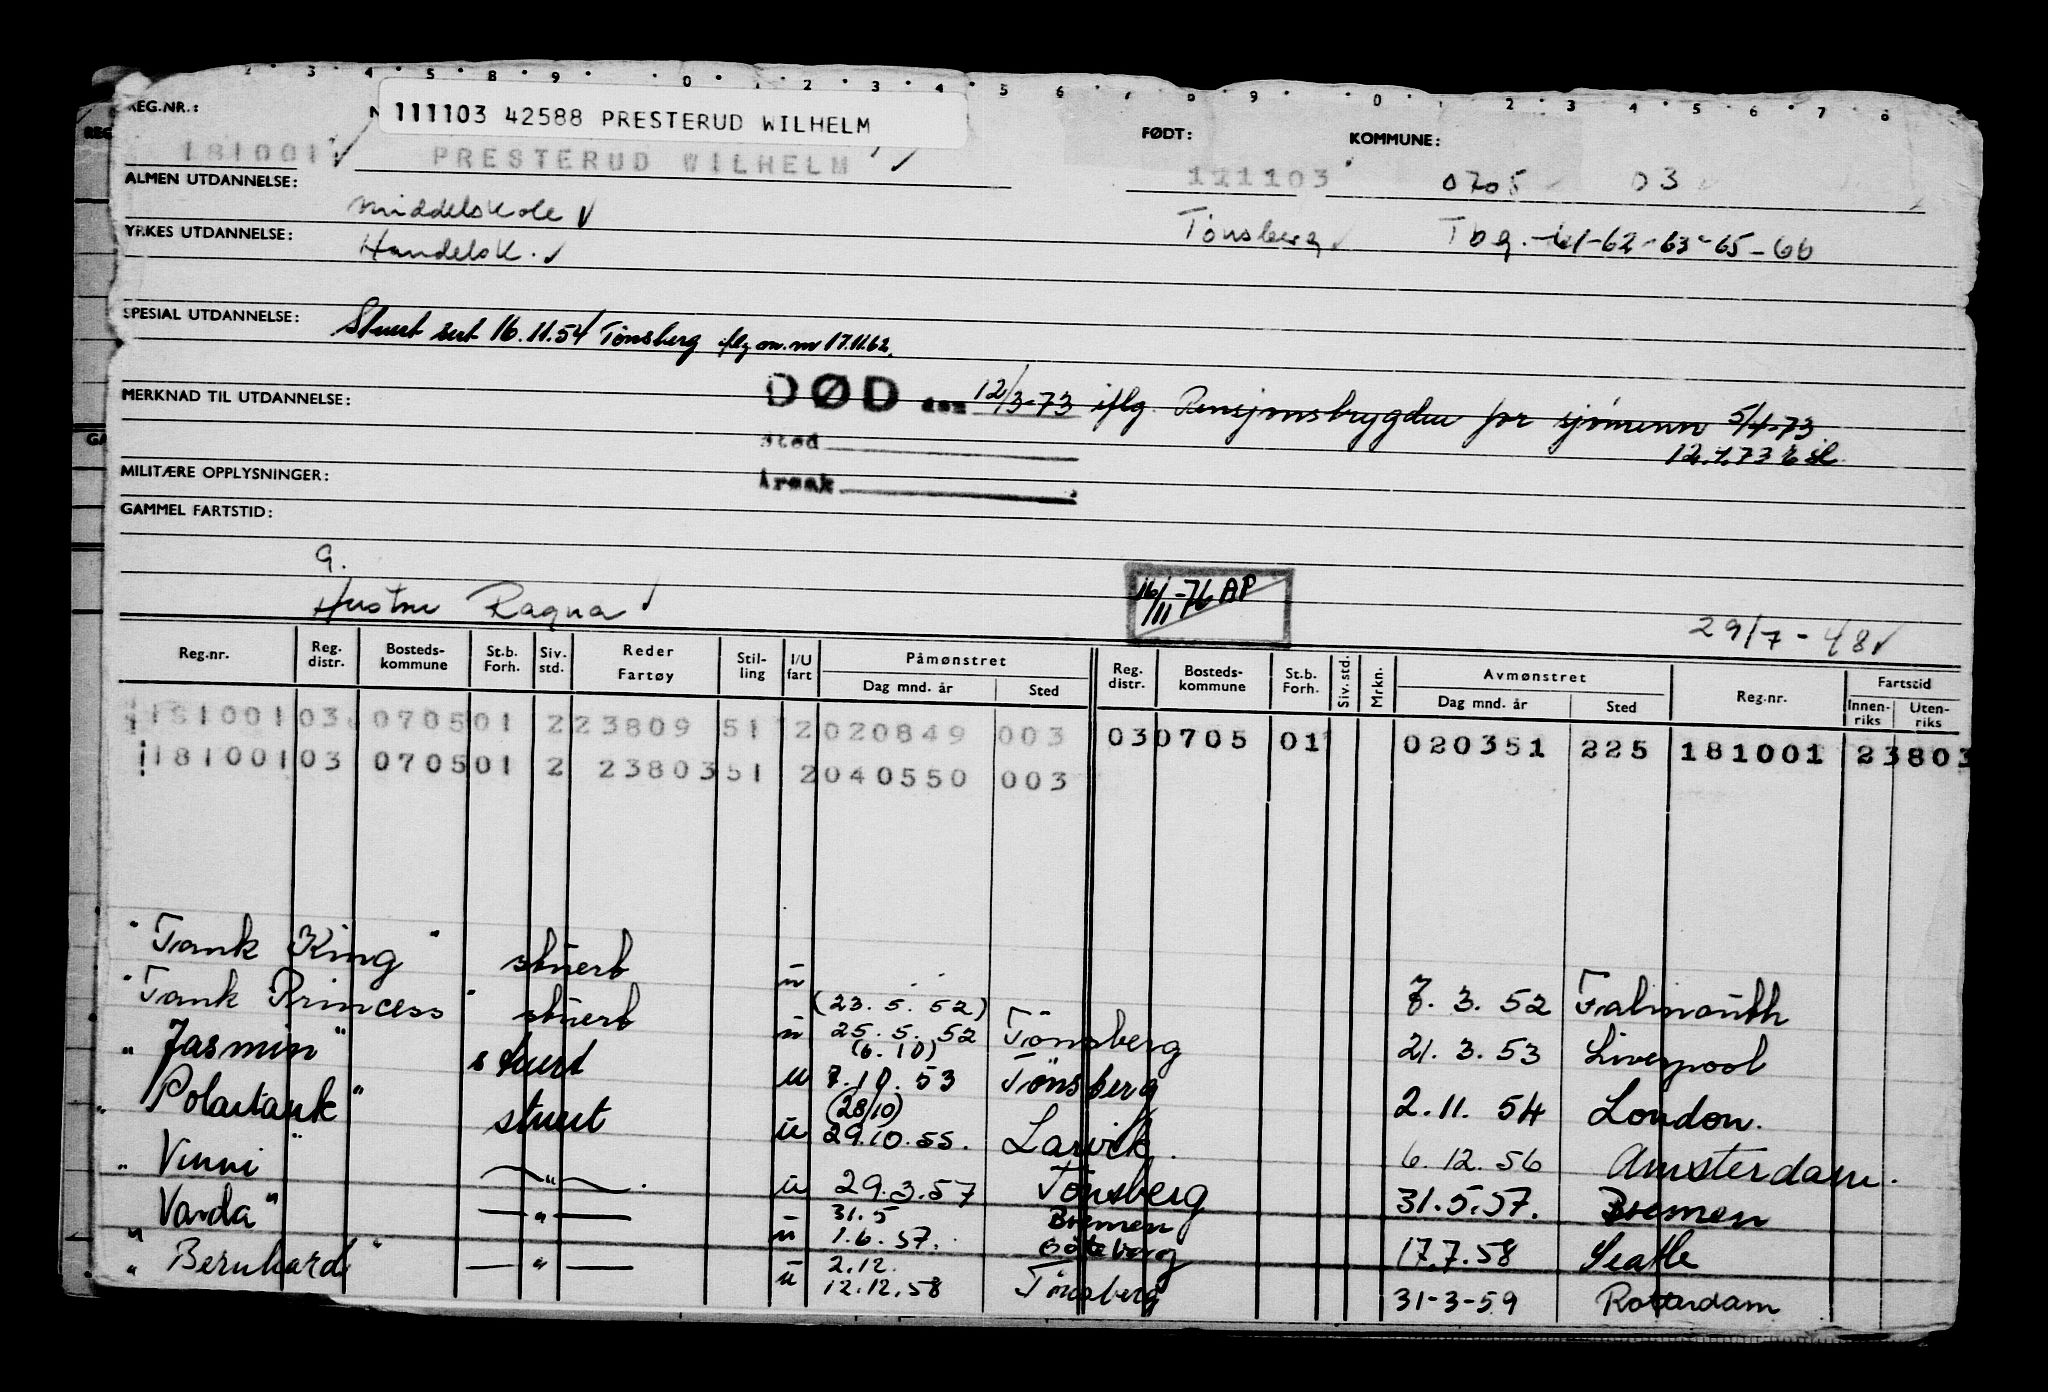 2 3 4 5 8 9 0 1 2 3 4 5 6 7 8 9 0 1 2 3 4 5 6 7 8
REG.NR.: N 111103 42588 PRESTERUD WILHELM FØDT: KOMMUNE:
181001 PRESTERUD WILHELM 111103 0705 03
ALMEN UTDANNELSE: middelskole Tønsberg Tbg. -61-62-63-65-66
YRKES UTDANNELSE: Handelsk.
SPESIAL UTDANNELSE: Stuert sert 16.11.54 Tønsberg iflg 17.11.62.
MERKNAD TIL UTDANNELSE: DØD den 12/3-73 iflg. Pensjonstrygden for sjømenn 5/4-73
sted 12.4.73
MILITÆRE OPPLYSNINGER: Årsak
GAMMEL FARTSTID:
G.
Hustru Ragna 16/11-76 AP 29/7-48
Reg.nr. Reg. distr. Bosteds-kommune St.b. Forh. Siv. std. Reder Fartøy Stil-ling I/U fart Påmønstret Dag mnd. år Sted Reg. distr. Bosteds-kommune St.b. Forh. Siv.std. Mrkn. Avmønstret Dag mnd. år Sted Reg.nr. Fartstid Innen-riks Uten-riks
181001 03 0705 01 2 23809 51 2 020849 003 03 0705 01 020351 225 181001 23803
181001 03 0705 01 2 23803 51 2 040550 003
"Tank King" stuert u 7. 3. 52 Falmouth
(23. 5. 52)
"Tank Princess" stuert u 25. 5. 52 Tønsberg 21. 3. 53 Liverpool
(6. 10)
"Jasmin" stuert u 7. 10. 53 Tønsberg 2. 11. 54 London.
(28/10)
"Polartank" stuert u 29.10.55. Larvik. 6. 12. 56 Amsterdam.
"Vinni" —"— u 29.3.57 Tønsberg 31.5.57. Bremen
31.5 Bremen
"Varda" —"— u 1.6.57. Göteborg 17.7.58 Seatle
2.12.
"Bernhard" —"— u 12.12.58 Tønsberg 31-3-59 Rotterdam